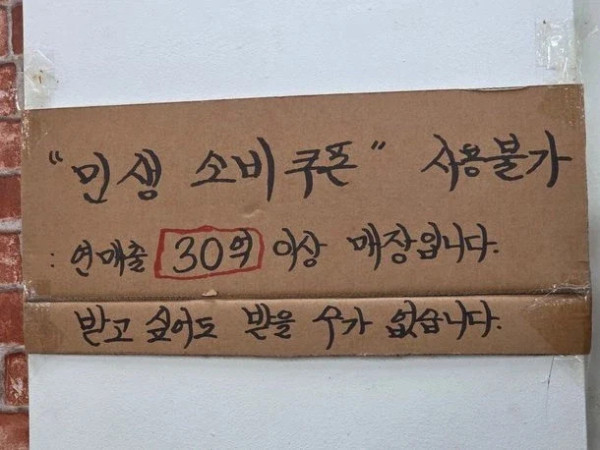 "민생 소비쿠폰" 사용불가
: 연매출 30억 이상 매장입니다.
받고 싶어도 받을 수가 없습니다.